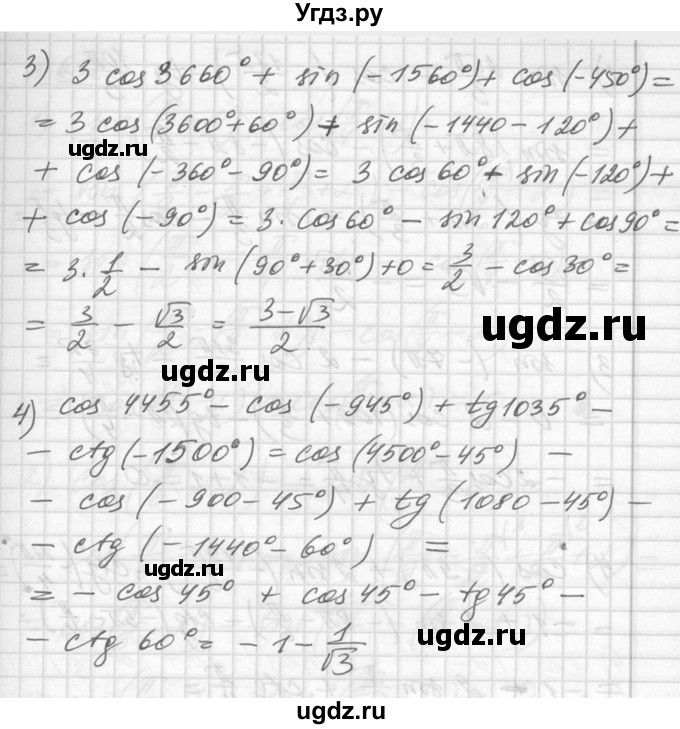 Угдз.ру
3) 3 cos 3660° + sin (-1560°) + cos (-450°) =
= 3 cos (3600° + 60°) + sin (-1440 - 120°) +
ugdz.ru
+ cos (-360° - 90°) = 3 cos 60° + sin (-120°) +
+ cos (-90°) = 3 · cos 60° - sin 120° + cos 90° =
= 3 · 1/2 - sin (90° + 30°) + 0 = 3/2 - cos 30° =
ugdz.ru
= 3/2 - √3/2 = (3-√3)/2
ugdz.ru
4) cos 4455° - cos (-945°) + tg 1035° -
- ctg (-1500°) = cos (4500° - 45°) -
- cos (-900 - 45°) + tg (1080 - 45°) -
- ctg (-1440° - 60°) =
ugdz.ru
= - cos 45° + cos 45° - tg 45° -
ugdz.ru
- ctg 60° = - 1 - 1/√3
ugdz.ru